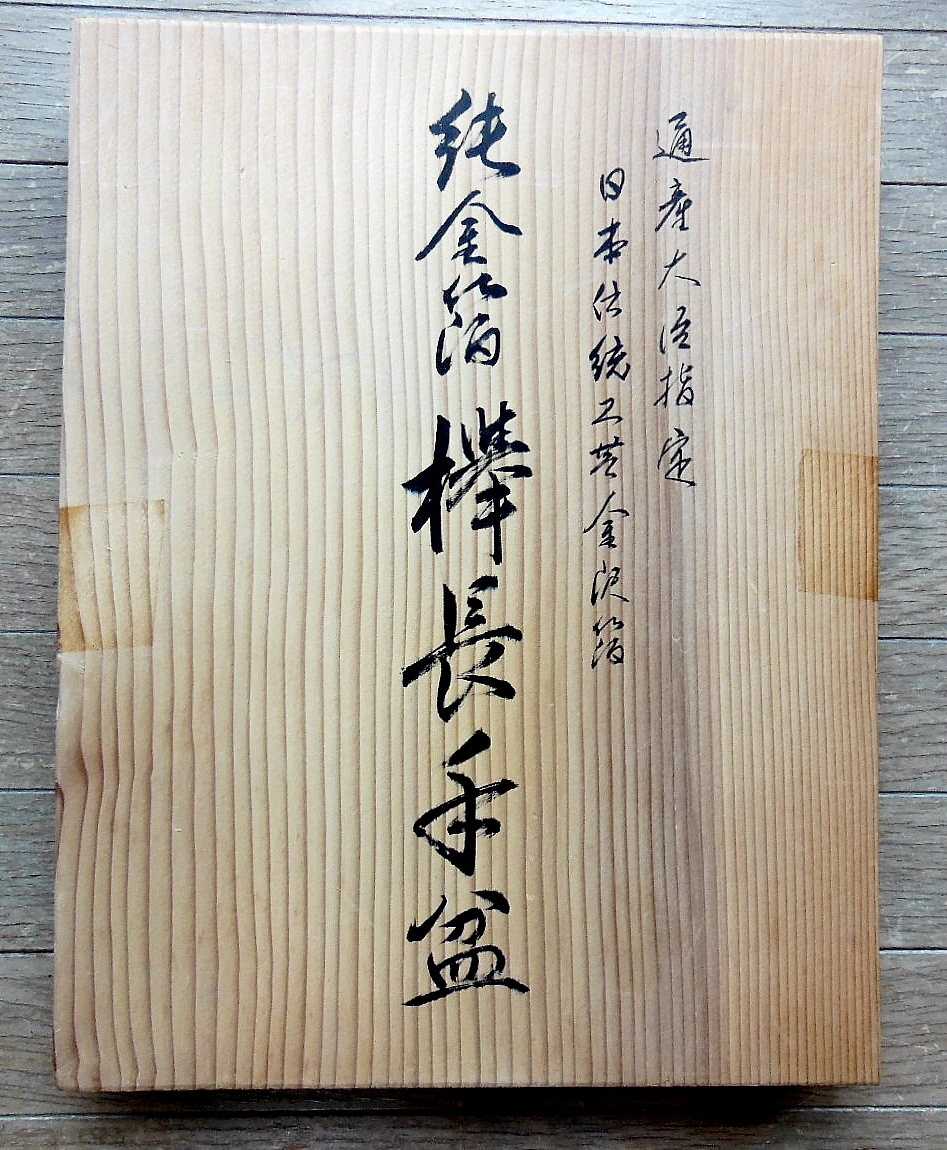 通産大臣指定
日本伝統工芸金沢箔
純金箔 欅長手盆